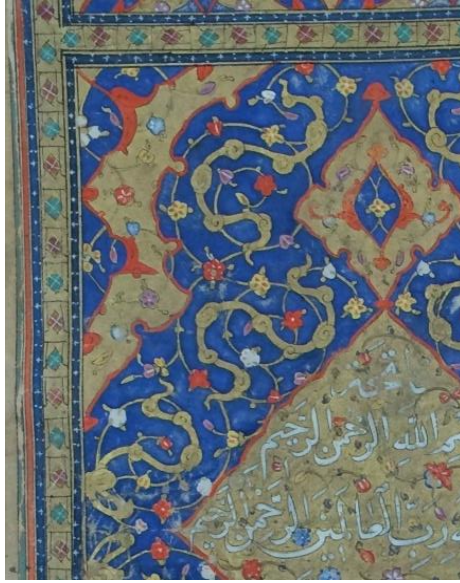 الله الرحمن الرحيم
رب العالمين الرحمن الرحيم